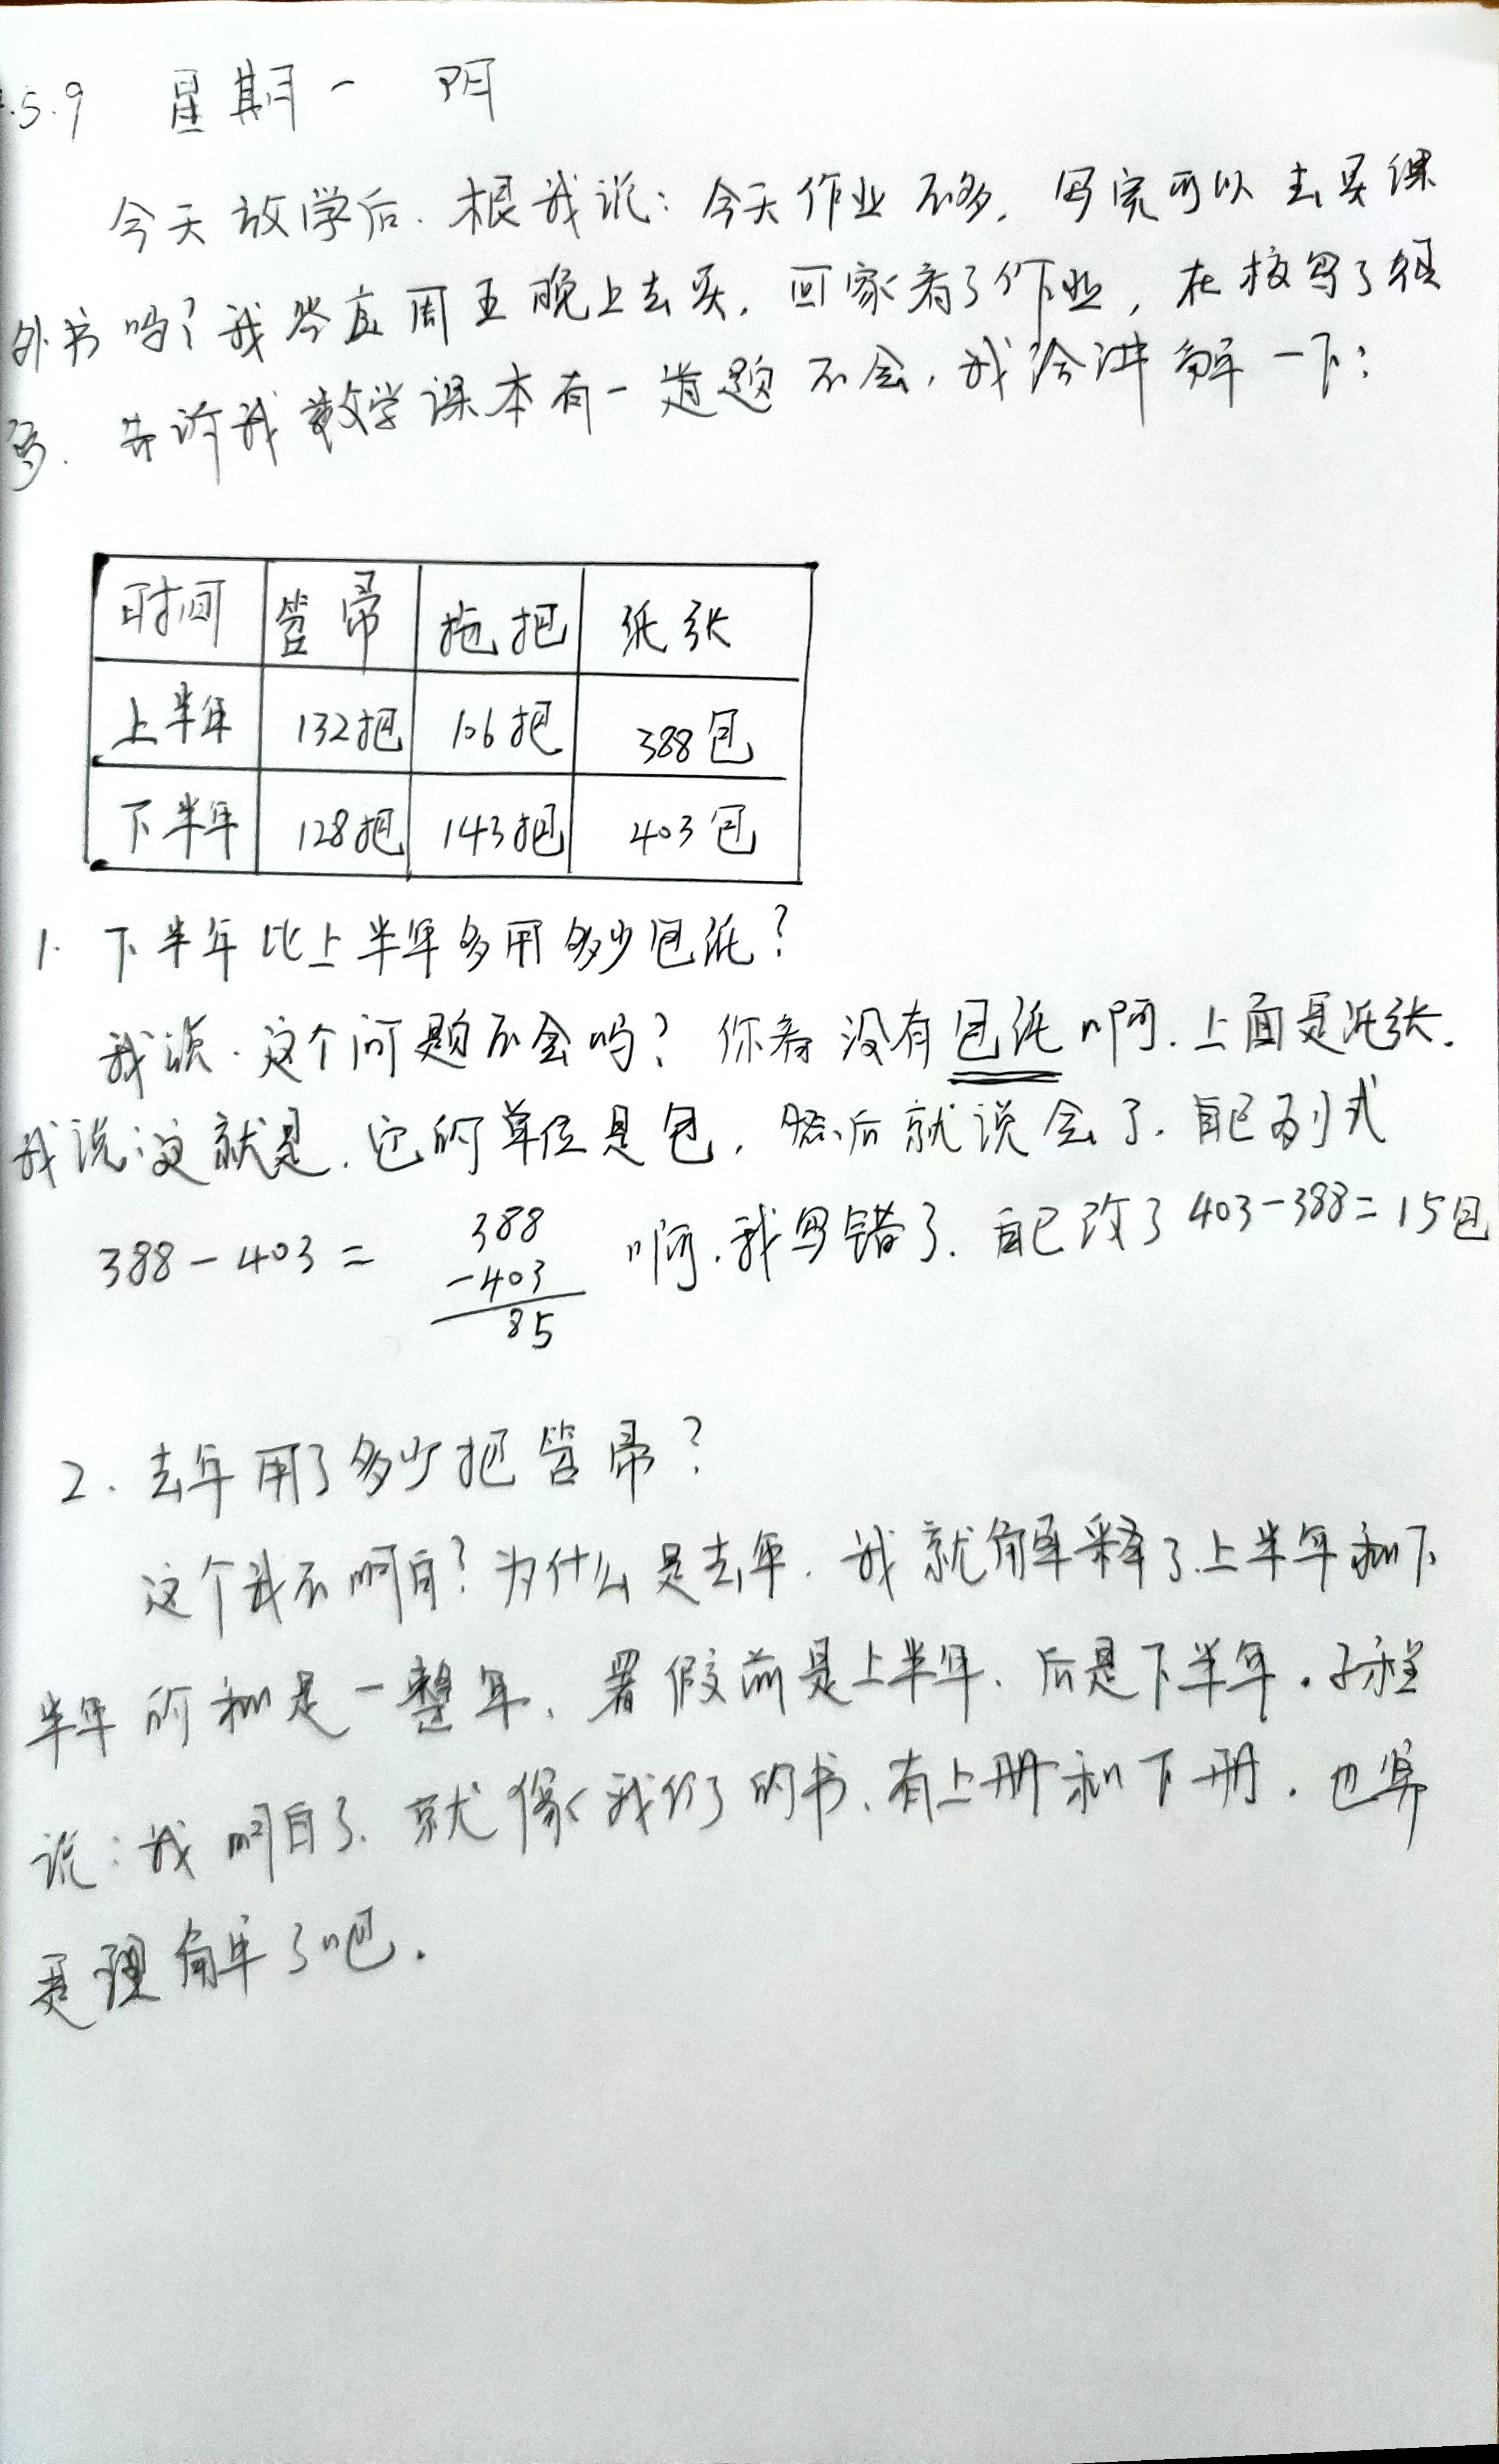 .5.9 星期一 阴
今天放学后.根我说:今天作业不多,写完可以去买课
外书吗?我答应周五晚上去买.回家看了作业,在校写了很
多.告诉我数学课本有一道题不会,我给讲解一下:
时间 笤帚 拖把 纸张
上半年 132把 106把 388包
下半年 128把 143把 403包
1. 下半年比上半年多用多少包纸?
我说.这个问题不会吗?你看没有包纸啊.上面是纸张.
我说:这就是.它的单位是包,然后就说会了.自己列式
388-403= 388 啊.我写错了.自己改了 403-388=15包
-403
85
2. 去年用了多少把笤帚?
这个我不明白?为什么是去年.我就解释了.上半年和下
半年的和是一整年、暑假前是上半年、后是下半年.子程
说:我明白了.就像我们的书、有上册和下册.也算
是理解了吧.